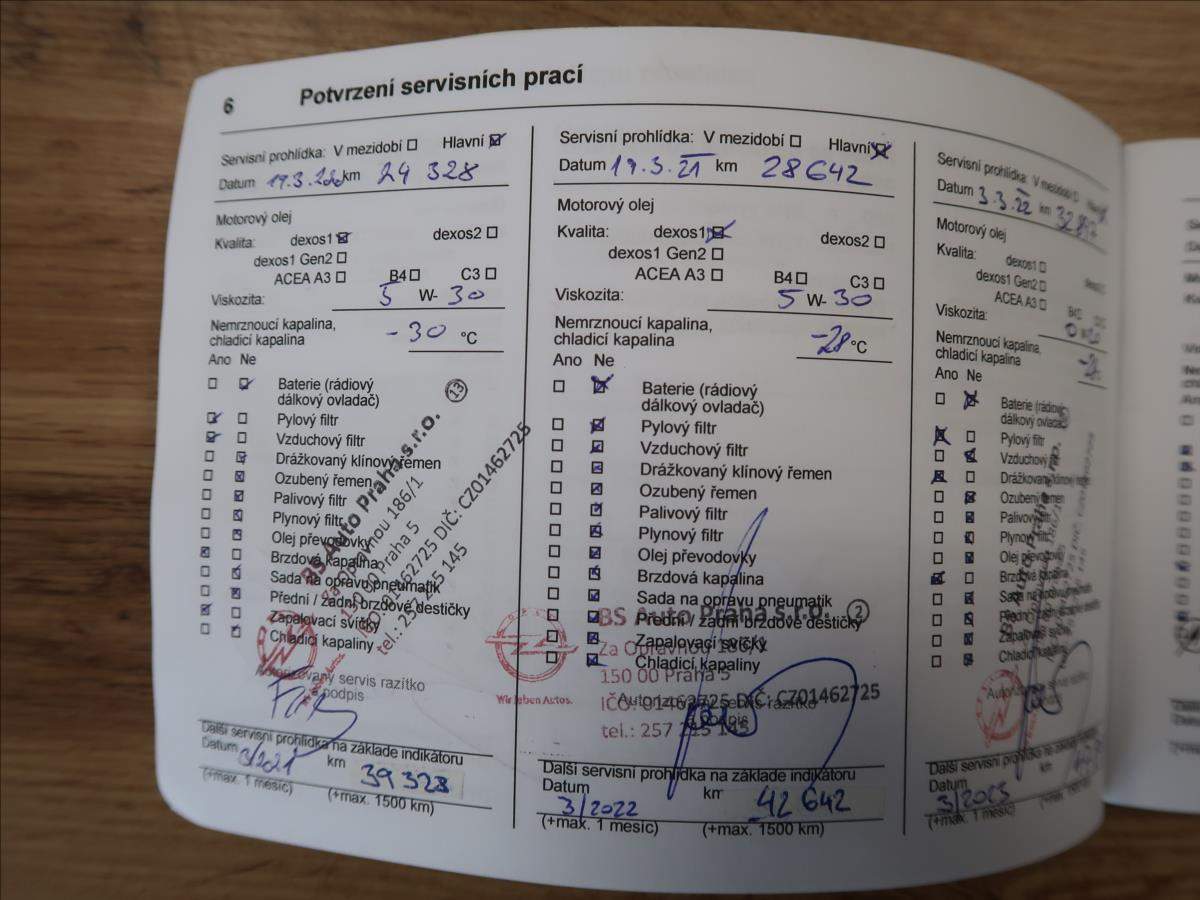 6 Potvrzení servisních prací
Servisní prohlídka: V mezidobí Hlavní
Datum 19.3. km 24 328
Motorový olej
Kvalita: dexos1 dexos2
dexos1 Gen2
ACEA A3 B4 C3
Viskozita: 5 W- 30
Nemrznoucí kapalina,
chladicí kapalina -30 °C
Ano Ne
Baterie (rádiový
dálkový ovladač)
Pylový filtr
Vzduchový filtr
Drážkovaný klínový řemen
Ozubený řemen
Palivový filtr
Plynový filtr
Olej převodovky
Brzdová kapalina
Sada na opravu pneumatik
Přední / zadní brzdové destičky
Zapalovací svíčky
Chladicí kapaliny
BS Auto Praha s.r.o. 13
Za Opravnou 186/1
150 00 Praha 5
IČO: 01462725 DIČ: CZ01462725
tel.: 257 215 145
Autorizovaný servis razítko
a podpis
Další servisní prohlídka na základe indikátoru
Datum 3/2021 km 39 328
(+max. 1 měsíc) (+max. 1500 km)
Servisní prohlídka: V mezidobí Hlavní
Datum 19.3.21 km 28642
Motorový olej
Kvalita: dexos1 dexos2
dexos1 Gen2
ACEA A3 B4 C3
Viskozita: 5 W- 30
Nemrznoucí kapalina,
chladicí kapalina -28 °C
Ano Ne
Baterie (rádiový
dálkový ovladač)
Pylový filtr
Vzduchový filtr
Drážkovaný klínový řemen
Ozubený řemen
Palivový filtr
Plynový filtr
Olej převodovky
Brzdová kapalina
Sada na opravu pneumatik
Přední / zadní brzdové destičky
Zapalovací svíčky
Chladicí kapaliny
BS Auto Praha s.r.o. 2
Za Opravnou 186/1
150 00 Praha 5
IČO: 01462725 DIČ: CZ01462725
tel.: 257 215 145
Wir leben Autos.
Autorizovaný servis razítko
a podpis
Další servisní prohlídka na základe indikátoru
Datum km
3/2022 42 642
(+max. 1 měsíc) (+max. 1500 km)
Servisní prohlídka: V mezidobí
Datum 3.3.22 km
Motorový olej
Kvalita: dexos1
dexos1 Gen2
ACEA A3 B4
Viskozita:
Nemrznoucí kapalina,
chladicí kapalina
Ano Ne
Baterie (rádiový
dálkový ovladač)
Pylový filtr
Vzduchový
Drážkovaný klínový
Ozubený řemen
Palivový
Plynový
Olej převodovky
Brzdová kapalina
Sada na opravu pneumatik
Přední
Zapalovací
Chladicí
Další servisní prohlídka na základe
Datum km
3/2023
(+max. 1 měsíc)